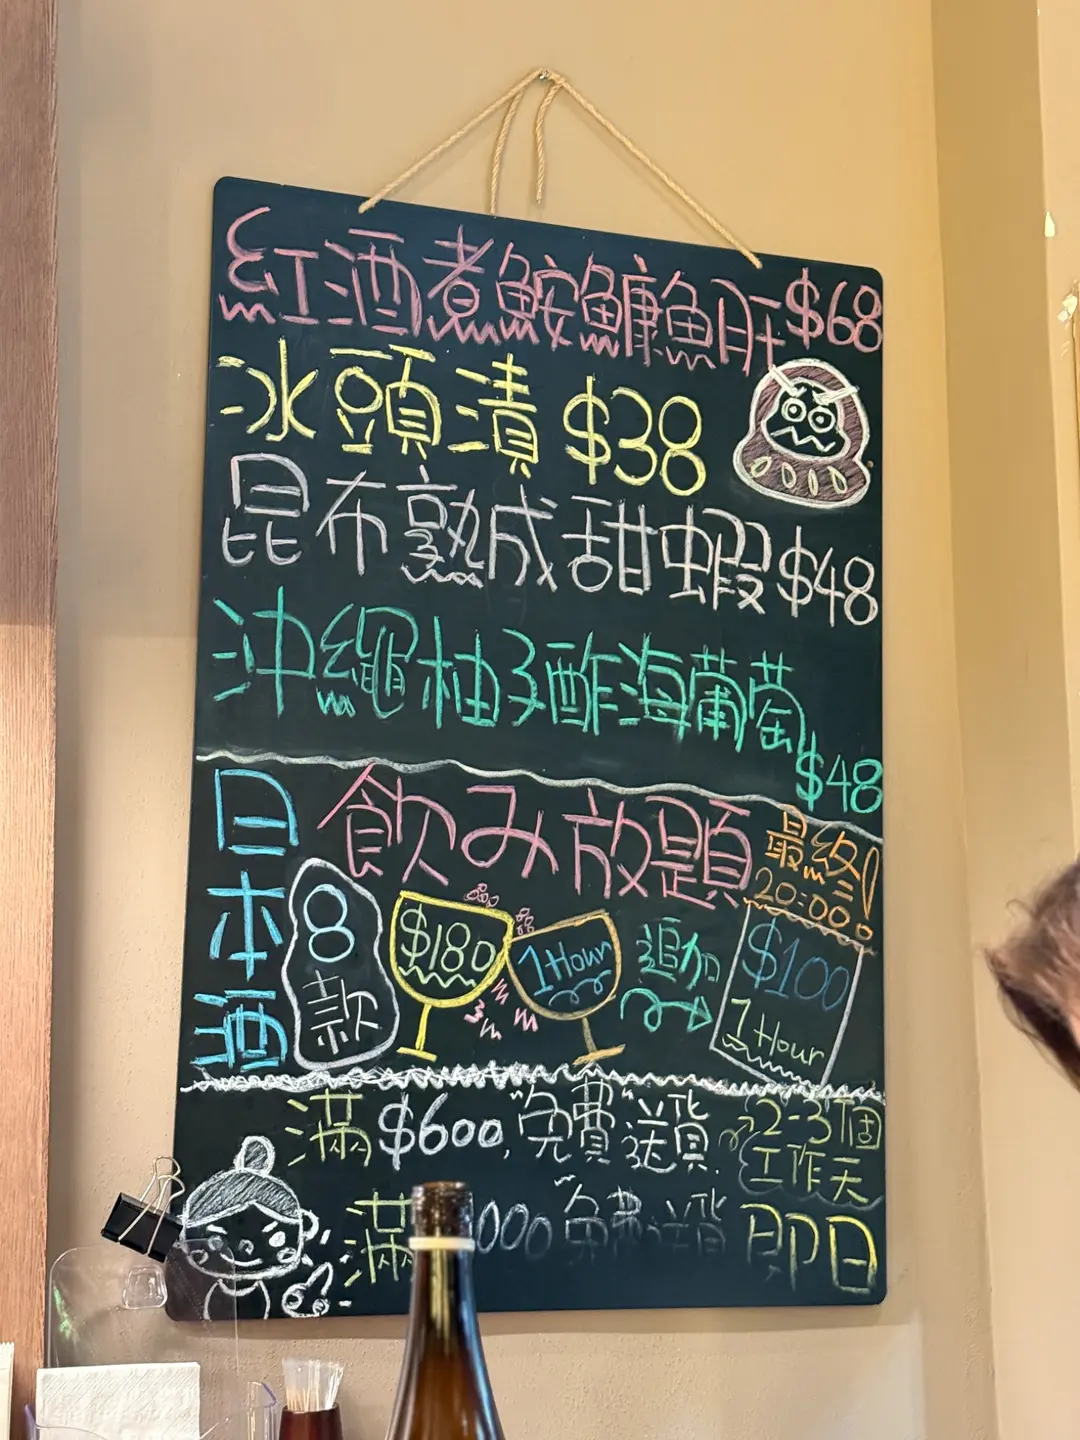 紅酒煮鮟鱇魚肝 $68
冰頭漬 $38
昆布熟成甜蝦 $48
沖繩柚子酢海葡萄
$48
日本酒
飲み放題
最終!
20:00.
8款
$180
1 Hour
追加
$100
1 Hour
滿 $600, "免費"送貨. 2-3個工作天
滿 000 免費送貨 即日